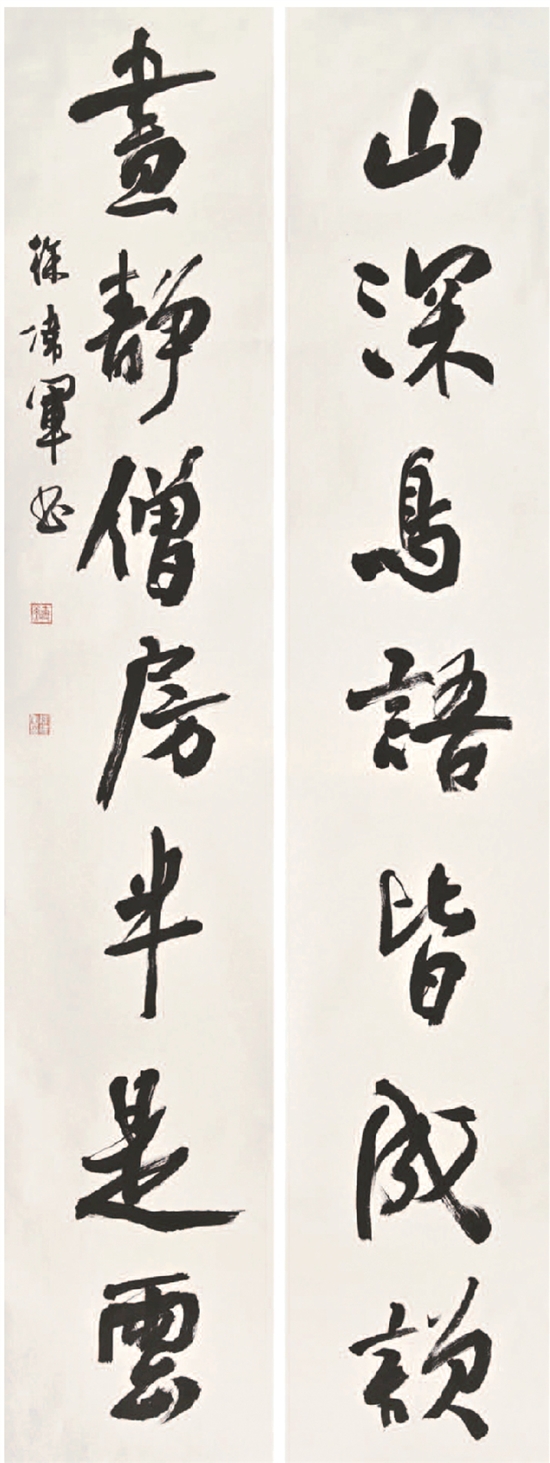 山深鳥語皆成韻
晝靜僧房半是雲
徐偉軍書